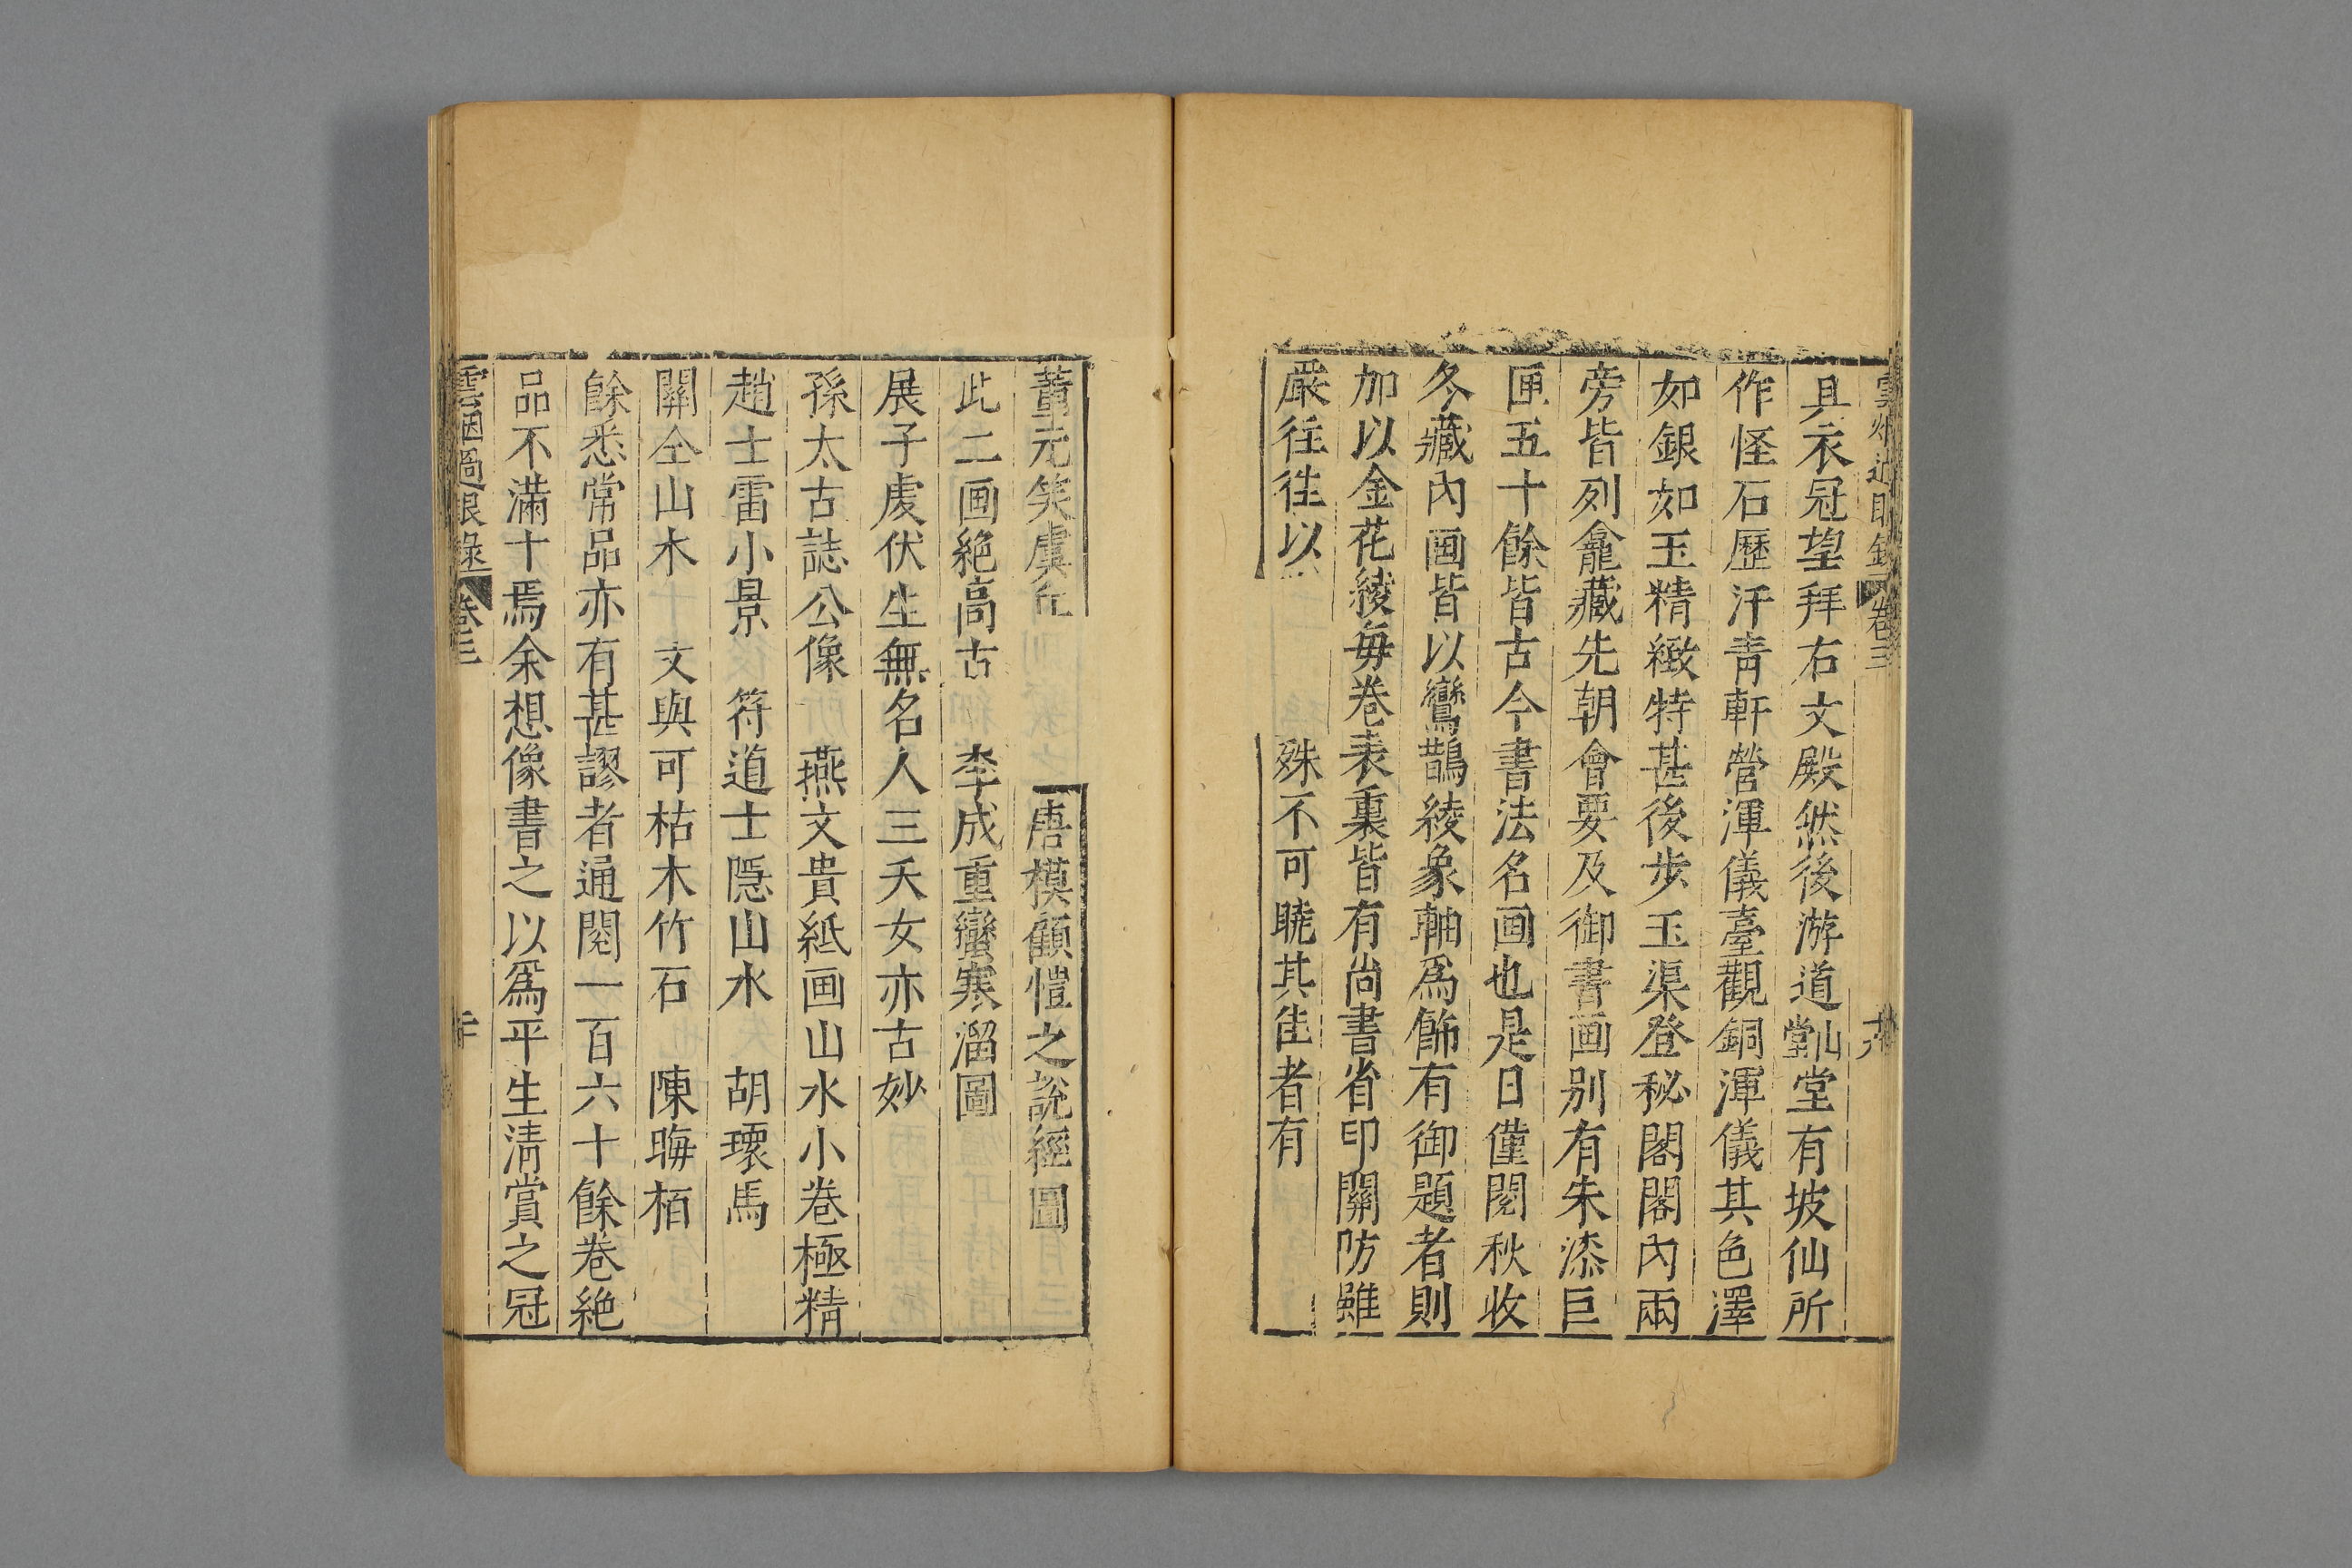 雲烟過眼錄 卷三 十九
具衣冠望拜右文殿然後游道山堂堂有坡仙所
作怪石歷汗青軒營渾儀臺觀銅渾儀其色澤
如銀如玉精緻特甚後步玉渠登秘閣閣內兩
旁皆列龕藏先朝會要及御書画别有朱漆巨
匣五十餘皆古今書法名画也是日僅閱秋收
冬藏內画皆以鸞鵲綾象軸為飾有御題者則
加以金花綾每卷表裏皆有尚書省印關防雖
嚴往往以 殊不可曉其佳者有
董元笑虞丘 唐模顧愷之説經圖
此二画絕高古 李成重巒寒溜圖
展子虔伏生無名人三天女亦古妙
孫太古誌公像 燕文貴紙画山水小卷極精
趙士雷小景 符道士隱山水 胡瓌馬
關仝山木 文與可枯木竹石 陳晦栢
餘悉常品亦有甚謬者通閱一百六十餘卷絕
品不滿十焉余想像書之以爲平生清賞之冠
雲烟過眼錄 卷三 二十